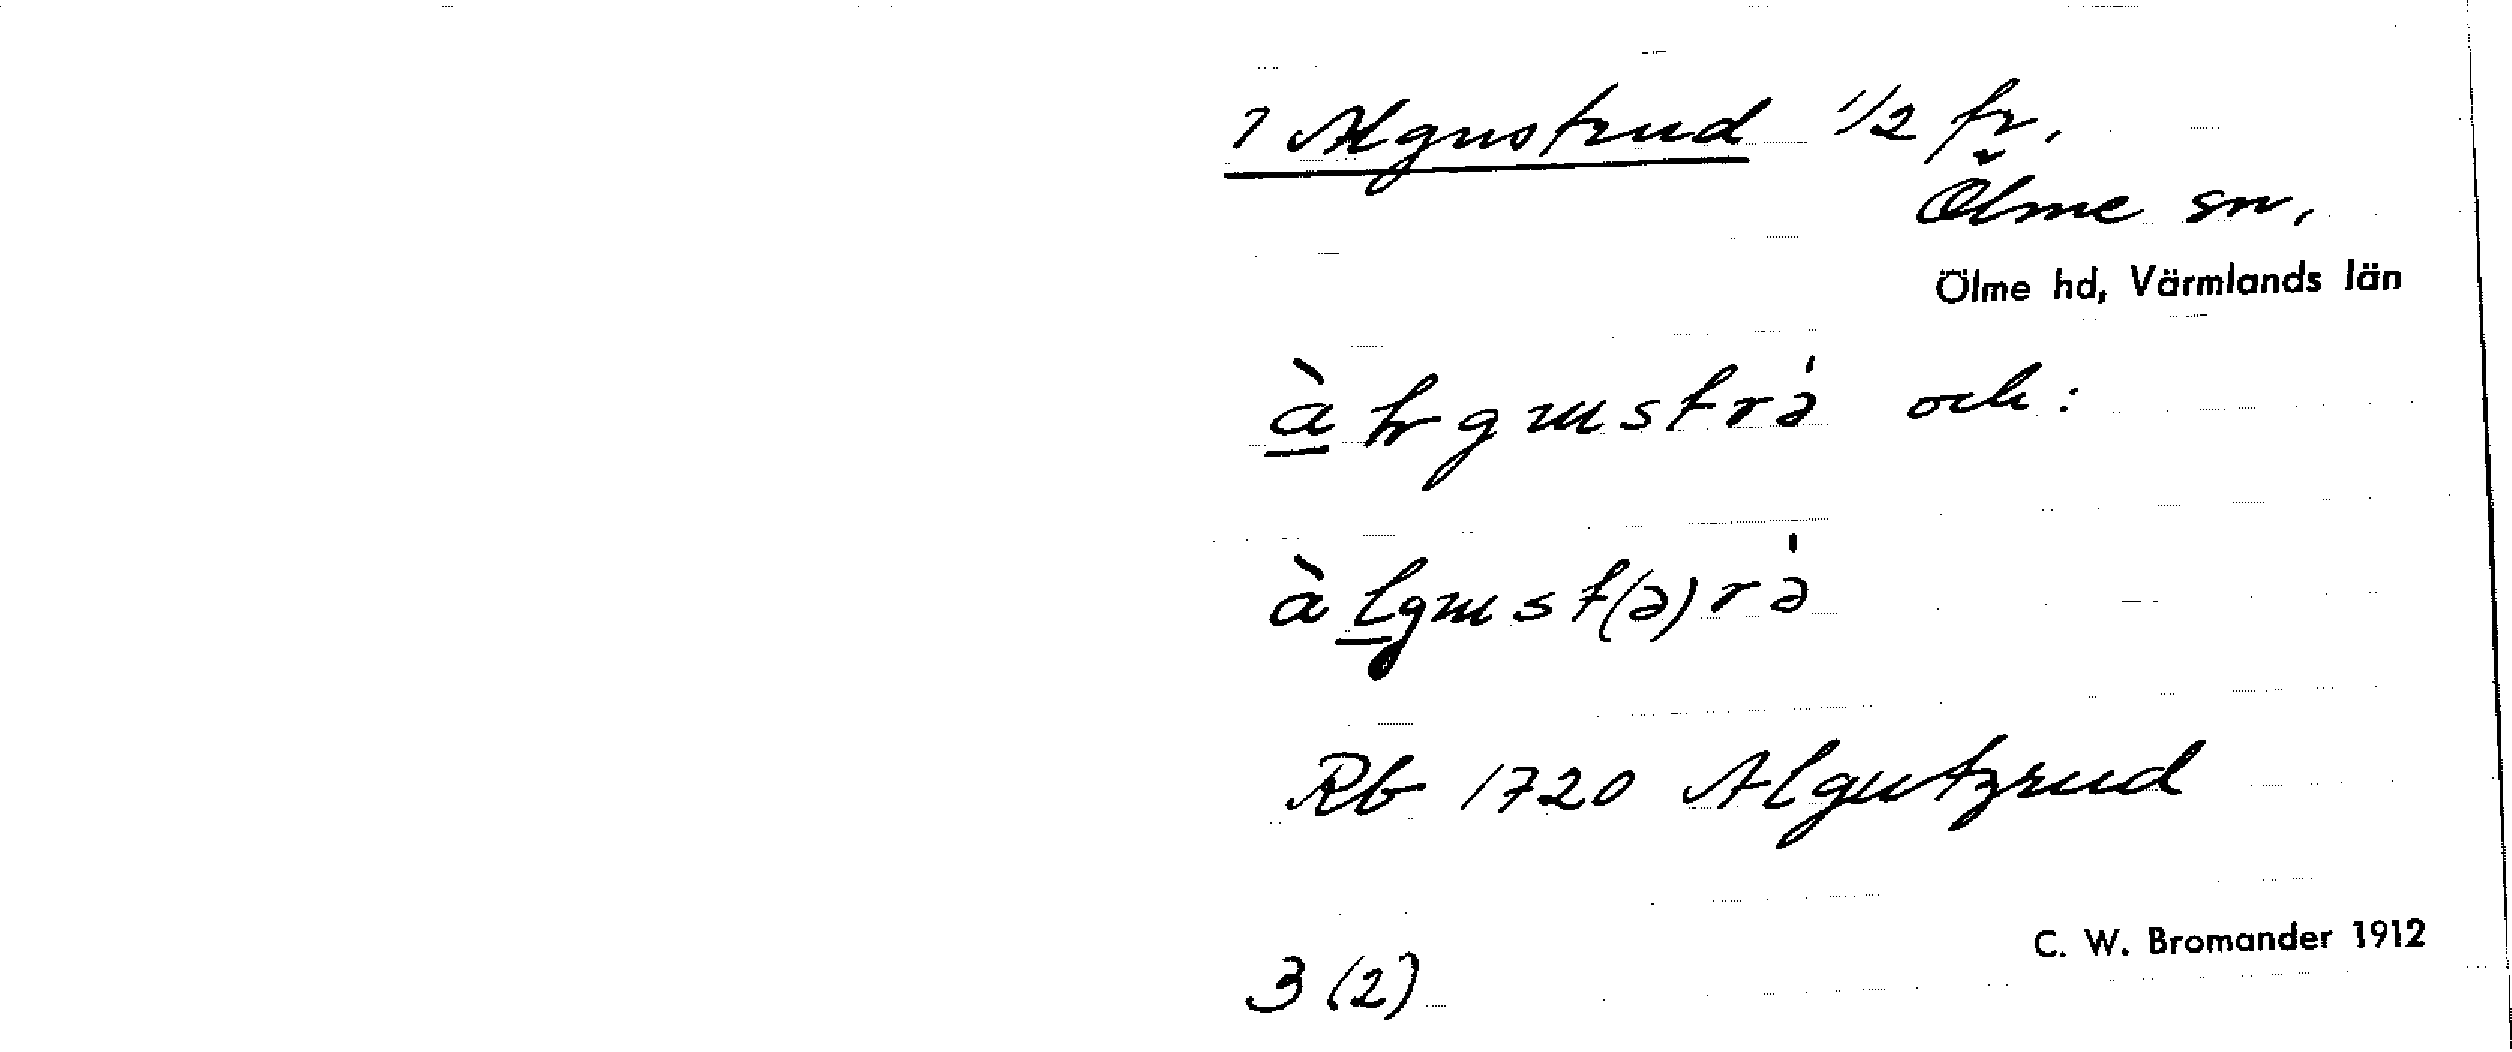 1 Algustrud 1/2 fr.
Ölme sn,
Ölme hd, Värmlands län
och:
Rb 1720 Algutzrud
C. W. Bromander 1912
3 (2)